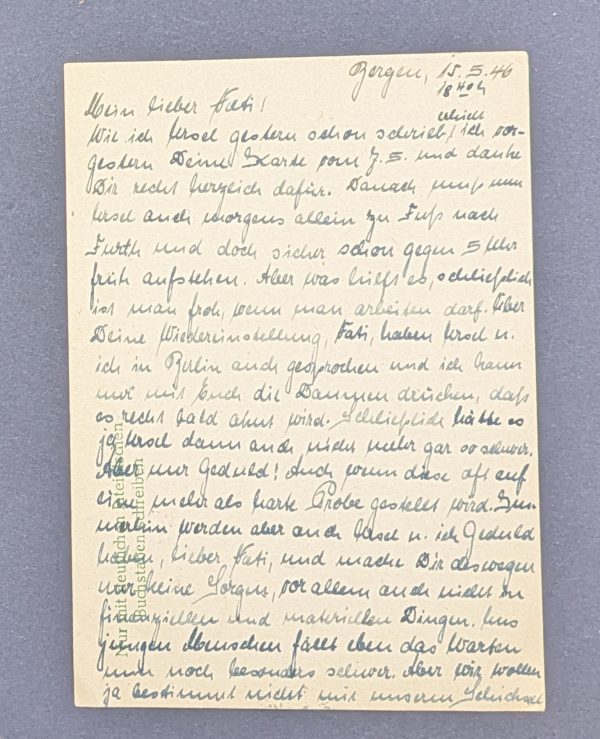 Bergen, 15.5.46
18 40 h
Mein lieber Vati!
erhielt
Wie ich Ursel gestern schon schrieb, / ich vor-
gestern Deine Karte vom 7.5. und danke
Dir recht herzlich dafür. Danach muß nun
Ursel auch morgens allein zu Fuß nach
Furth und doch sicher schon gegen 5 Uhr
früh aufstehen. Aber was hilft es, schließlich
ist man froh, wenn man arbeiten darf. Über
Deine Wiedereinstellung, Vati, haben Ursel u.
ich in Berlin auch gesprochen und ich kann
nur mit Euch die Daumen drücken, daß
es recht bald wird. Schließlich hätte es
ja Ursel dann auch nicht mehr gar so schwer.
Aber nur Geduld! Auch wenn diese oft auf
eine mehr als harte Probe gestellt wird. Im-
merhin werden aber auch Ursel u. ich Geduld
haben, lieber Vati, und mache Dir deswegen
nur keine Sorgen, vor allem auch nicht in
finanziellen und materiellen Dingen. Uns
jungen Menschen fällt eben das Warten
nun noch besonders schwer. Aber wir wollen
ja bestimmt nicht mit unserm Schicksal
Nur mit deutlichen lateinischen
Buchstaben schreiben